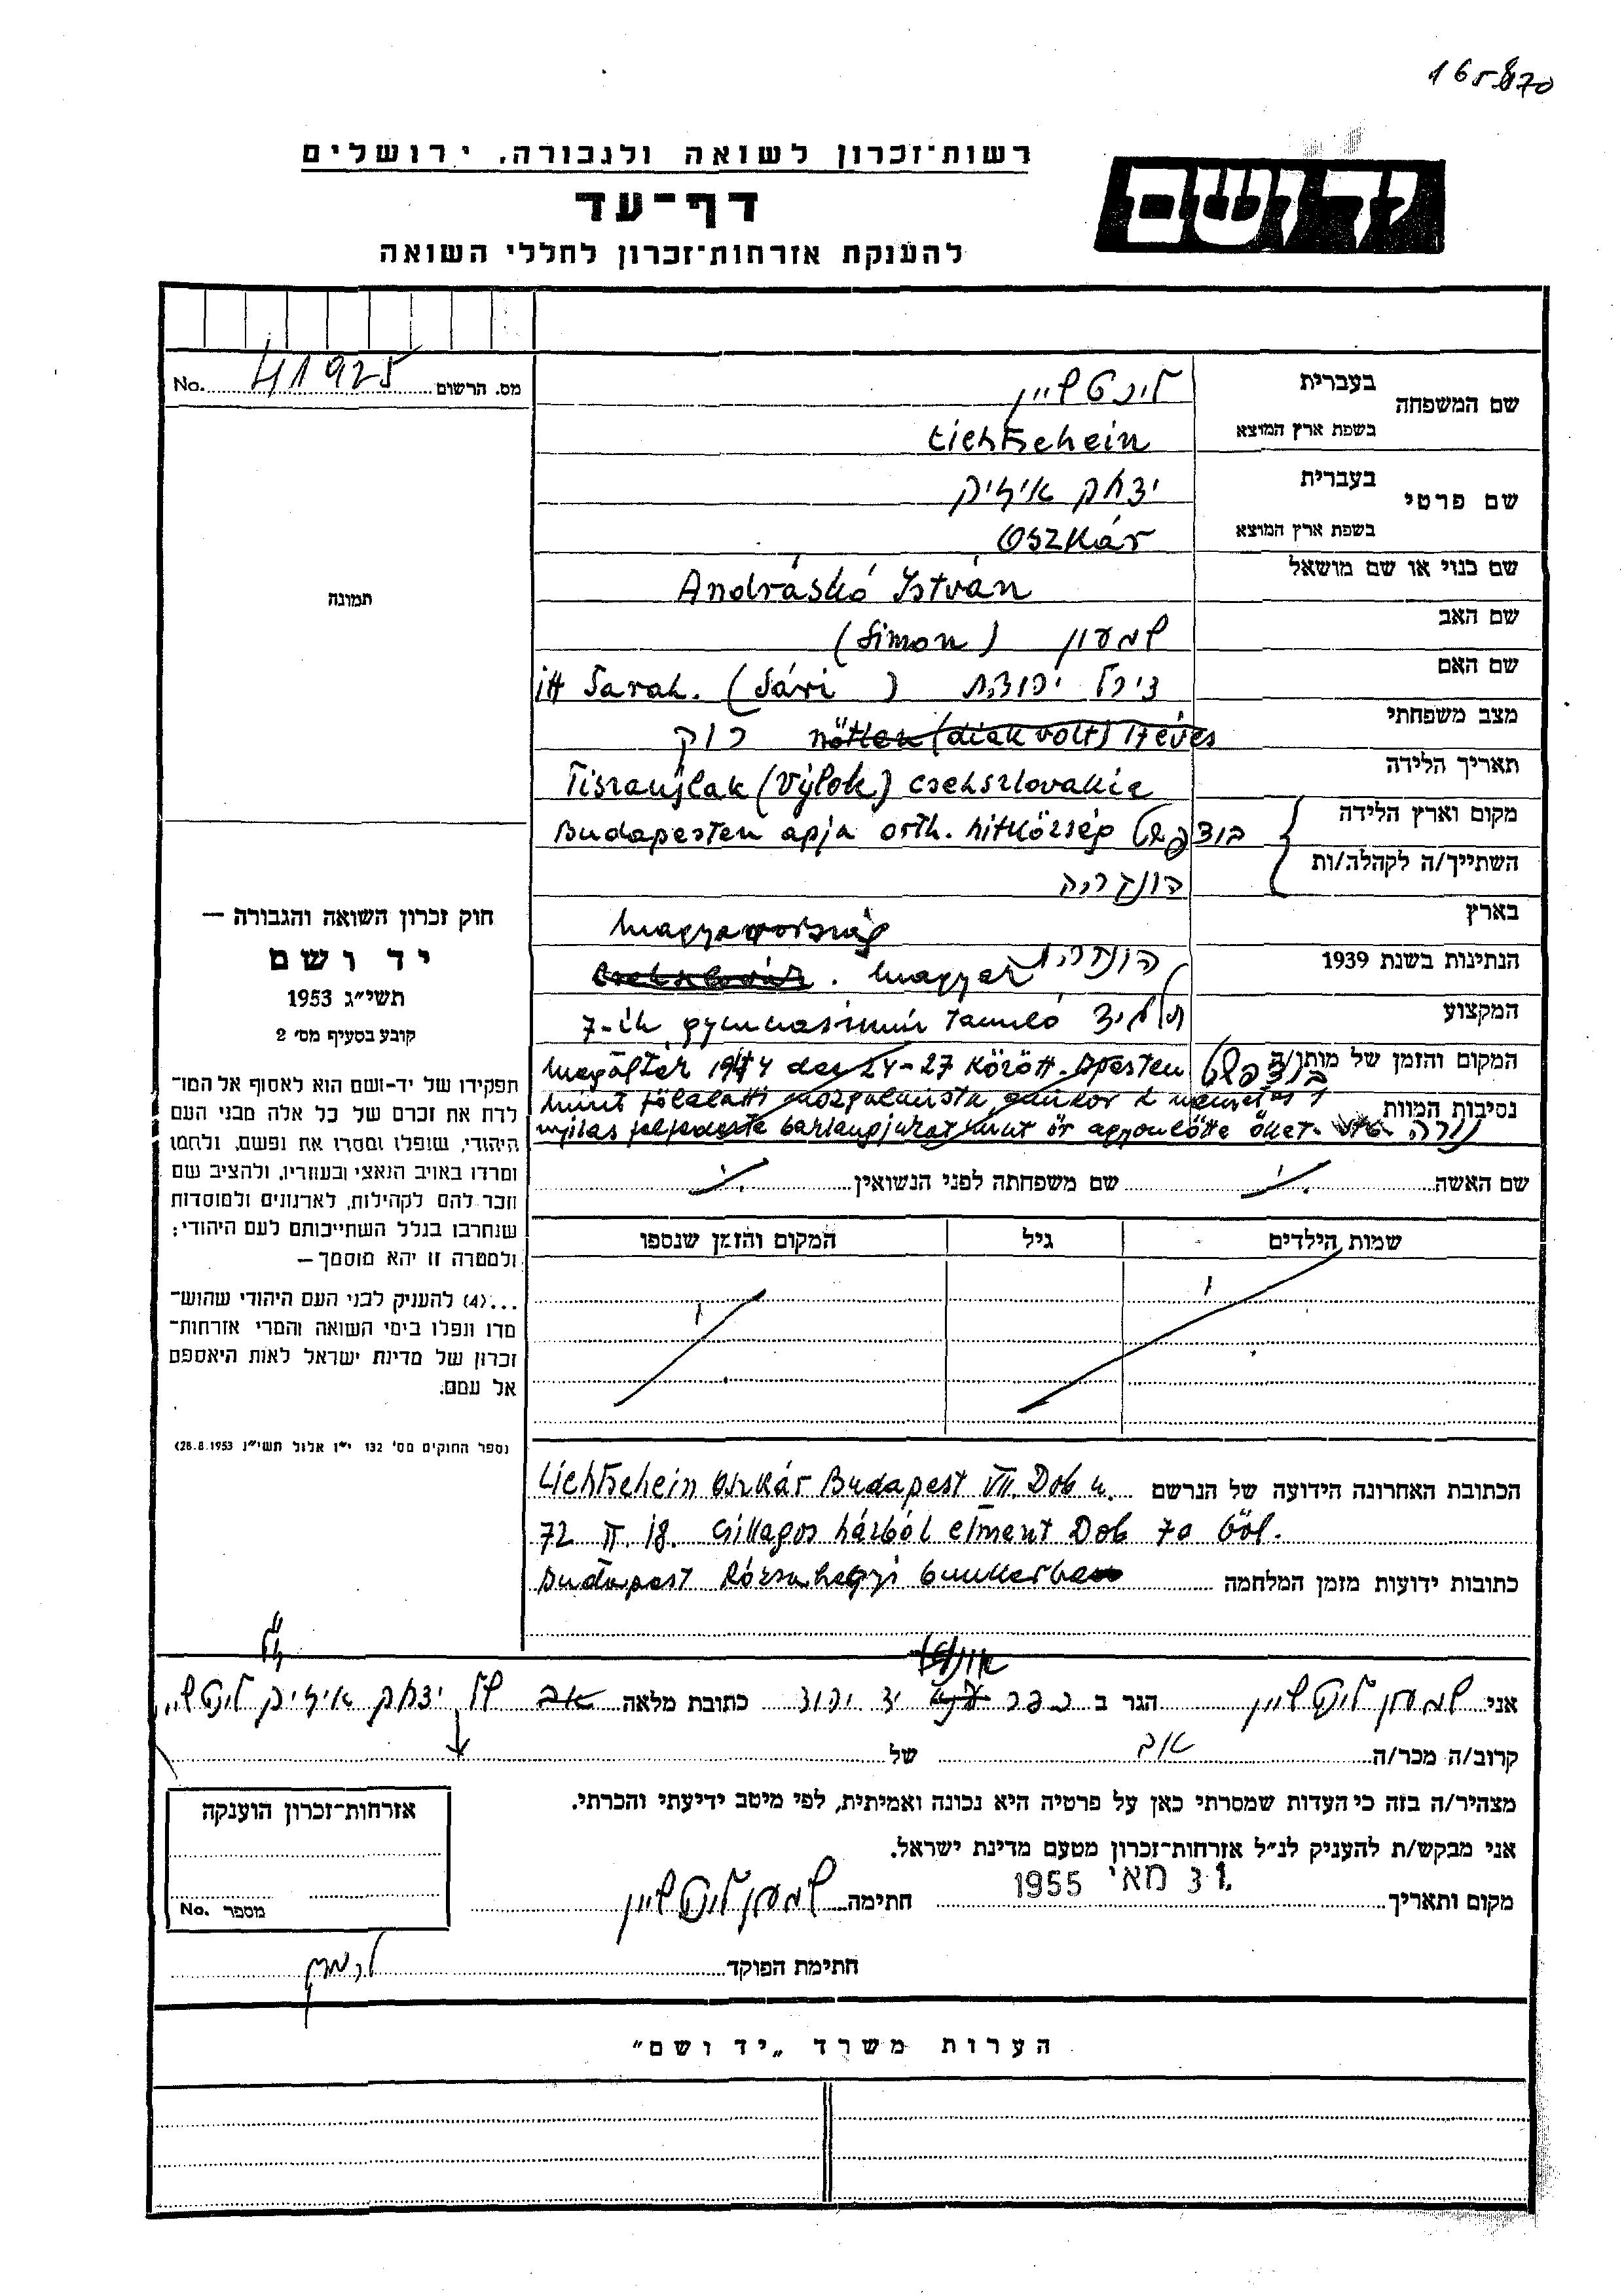 165870
רשות־זכרון לשואה ולגבורה, ירושלים
יד ושם
דף־עד
להענקת אזרחות־זכרון לחללי השואה
No. 41925 מס. הרשום
שם המשפחה בעברית ליכטשיין
בשפת ארץ המוצא Lichtschein
שם פרטי בעברית יצחק אייזיק
בשפת ארץ המוצא Oszkár
שם כנוי או שם מושאל Andráskó István
שם האב שמעון (Simon)
שם האם יהודית Sarah. (Sári)
מצב משפחתי רוק nőtlen (diák volt) 17 éves
תאריך הלידה Tiszaujlak (Vylok) Csehszlovakia
מקום וארץ הלידה Budapesten apja orth. hitközség בודפשט
השתייך/ה לקהלה/ות הונגריה
בארץ Magyarország
הנתינות בשנת 1939 הונגרית magyar
המקצוע תלמיד 7-ik gymnasimúm Tanuló
המקום והזמן של מותו/ה בודפשט megölték 1944 dec 24-27 között. Bpesten
נסיבות המוות נורה mint földalatti őket.
תמונה
שם האשה שם משפחתה לפני הנשואין
שמות הילדים גיל המקום והזמן שנספו
חוק זכרון השואה והגבורה —
יד ושם
תשי״ג 1953
קובע בסעיף מס׳ 2
תפקידו של יד־ושם הוא לאסוף אל המו־
לדת את זכרם של כל אלה מבני העם
היהודי, שנפלו ומסרו את נפשם, נלחמו
ומרדו באויב הנאצי ובעוזריו, ולהציב שם
וזכר להם לקהילות, לארגונים ולמוסדות
שנחרבו בגלל השתייכותם לעם היהודי;
ולמטרה זו יהא מוסמך —
...(4) להעניק לבני העם היהודי שהוש־
מדו ונפלו בימי השואה והמרי אזרחות־
זכרון של מדינת ישראל לאות היאספם
אל עמם.
(ספר החוקים מס׳ 132 י״ז אלול תשי״ג 28.8.1953)
הכתובת האחרונה הידועה של הנרשם Lichtschein Oszkár Budapest VII. Dob u.
72 II. 18. Csillagos házból elment Dob 70 ből.
כתובות ידועות מזמן המלחמה Budapest Rózsahegyi bunkerben
אני שמעון ליכטשיין הגר ב כפר כתובת מלאה אב של יצחק אייזיק ליכטשיין
קרוב/ה מכר/ה אב של
מצהיר/ה בזה כי העדות שמסרתי כאן על פרטיה היא נכונה ואמיתית, לפי מיטב ידיעתי והכרתי.
אני מבקש/ת להעניק לנ״ל אזרחות־זכרון מטעם מדינת ישראל.
מקום ותאריך 31 מאי 1955 חתימה שמעון ליכטשיין
חתימת הפוקד
אזרחות־זכרון הוענקה
No. מספר
הערות משרד „יד ושם״